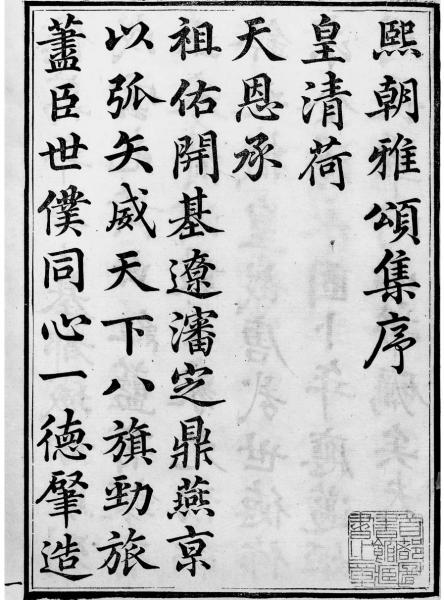 熙朝雅頌集序
皇清荷
天恩承
祖佑開基遼瀋定鼎燕京
以弧矢威天下八旗勁旅
藎臣世僕同心一德肇造
一